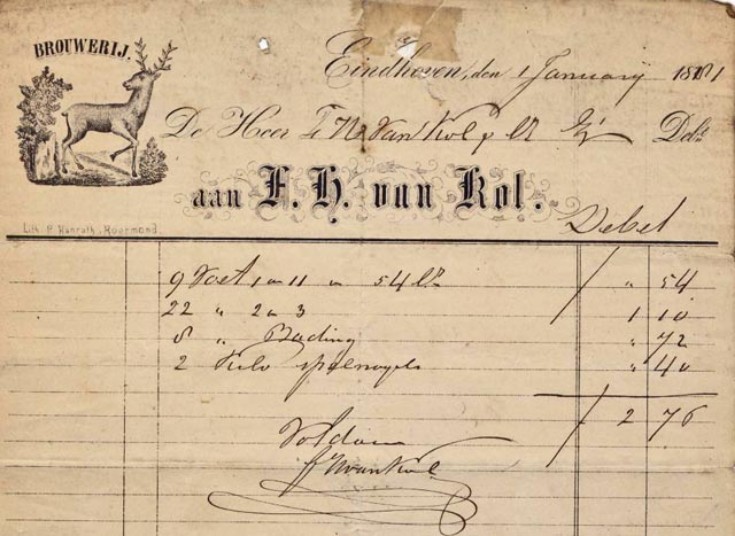 BROUWERIJ.
Eindhoven, den 1 January 1881
De Heer F H Van Kol Deb.
aan F. H. van Kol.
Debet
Lith. P. Hanrath, Roermond.
9 Voet 1 11 54 " 54
22 " 2 3 1 10
8 " " 72
2 Kilo " 40
2 76
Voldaan
FHvanKol